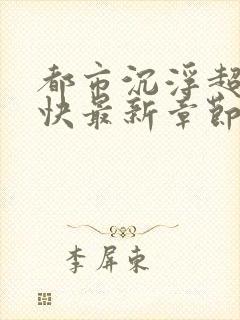 都市沉浮超
快最新章節
李屏东